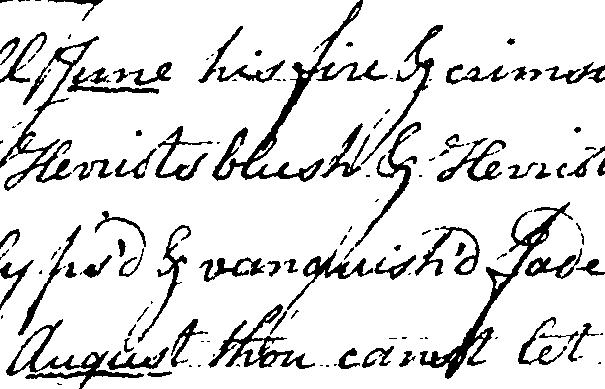 ll June his fire & crimso
Herriots blush'd & Herriot
lyps'd & vanquish'd fade
August thou canst let